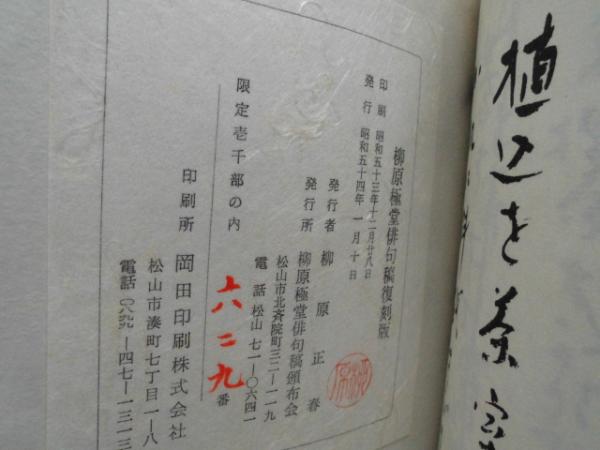 植込を茶
柳原極堂俳句稿復刻版
印刷 昭和五十三年十二月廿八日
発行 昭和五十四年一月十日
発行者 柳原正春
発行所 柳原極堂俳句稿頒布会
松山市北斉院町三二一一九
電話 松山 七一一〇六四一
限定壱千部の内
六二九番
印刷所 岡田印刷株式会社
松山市湊町七丁目一一八